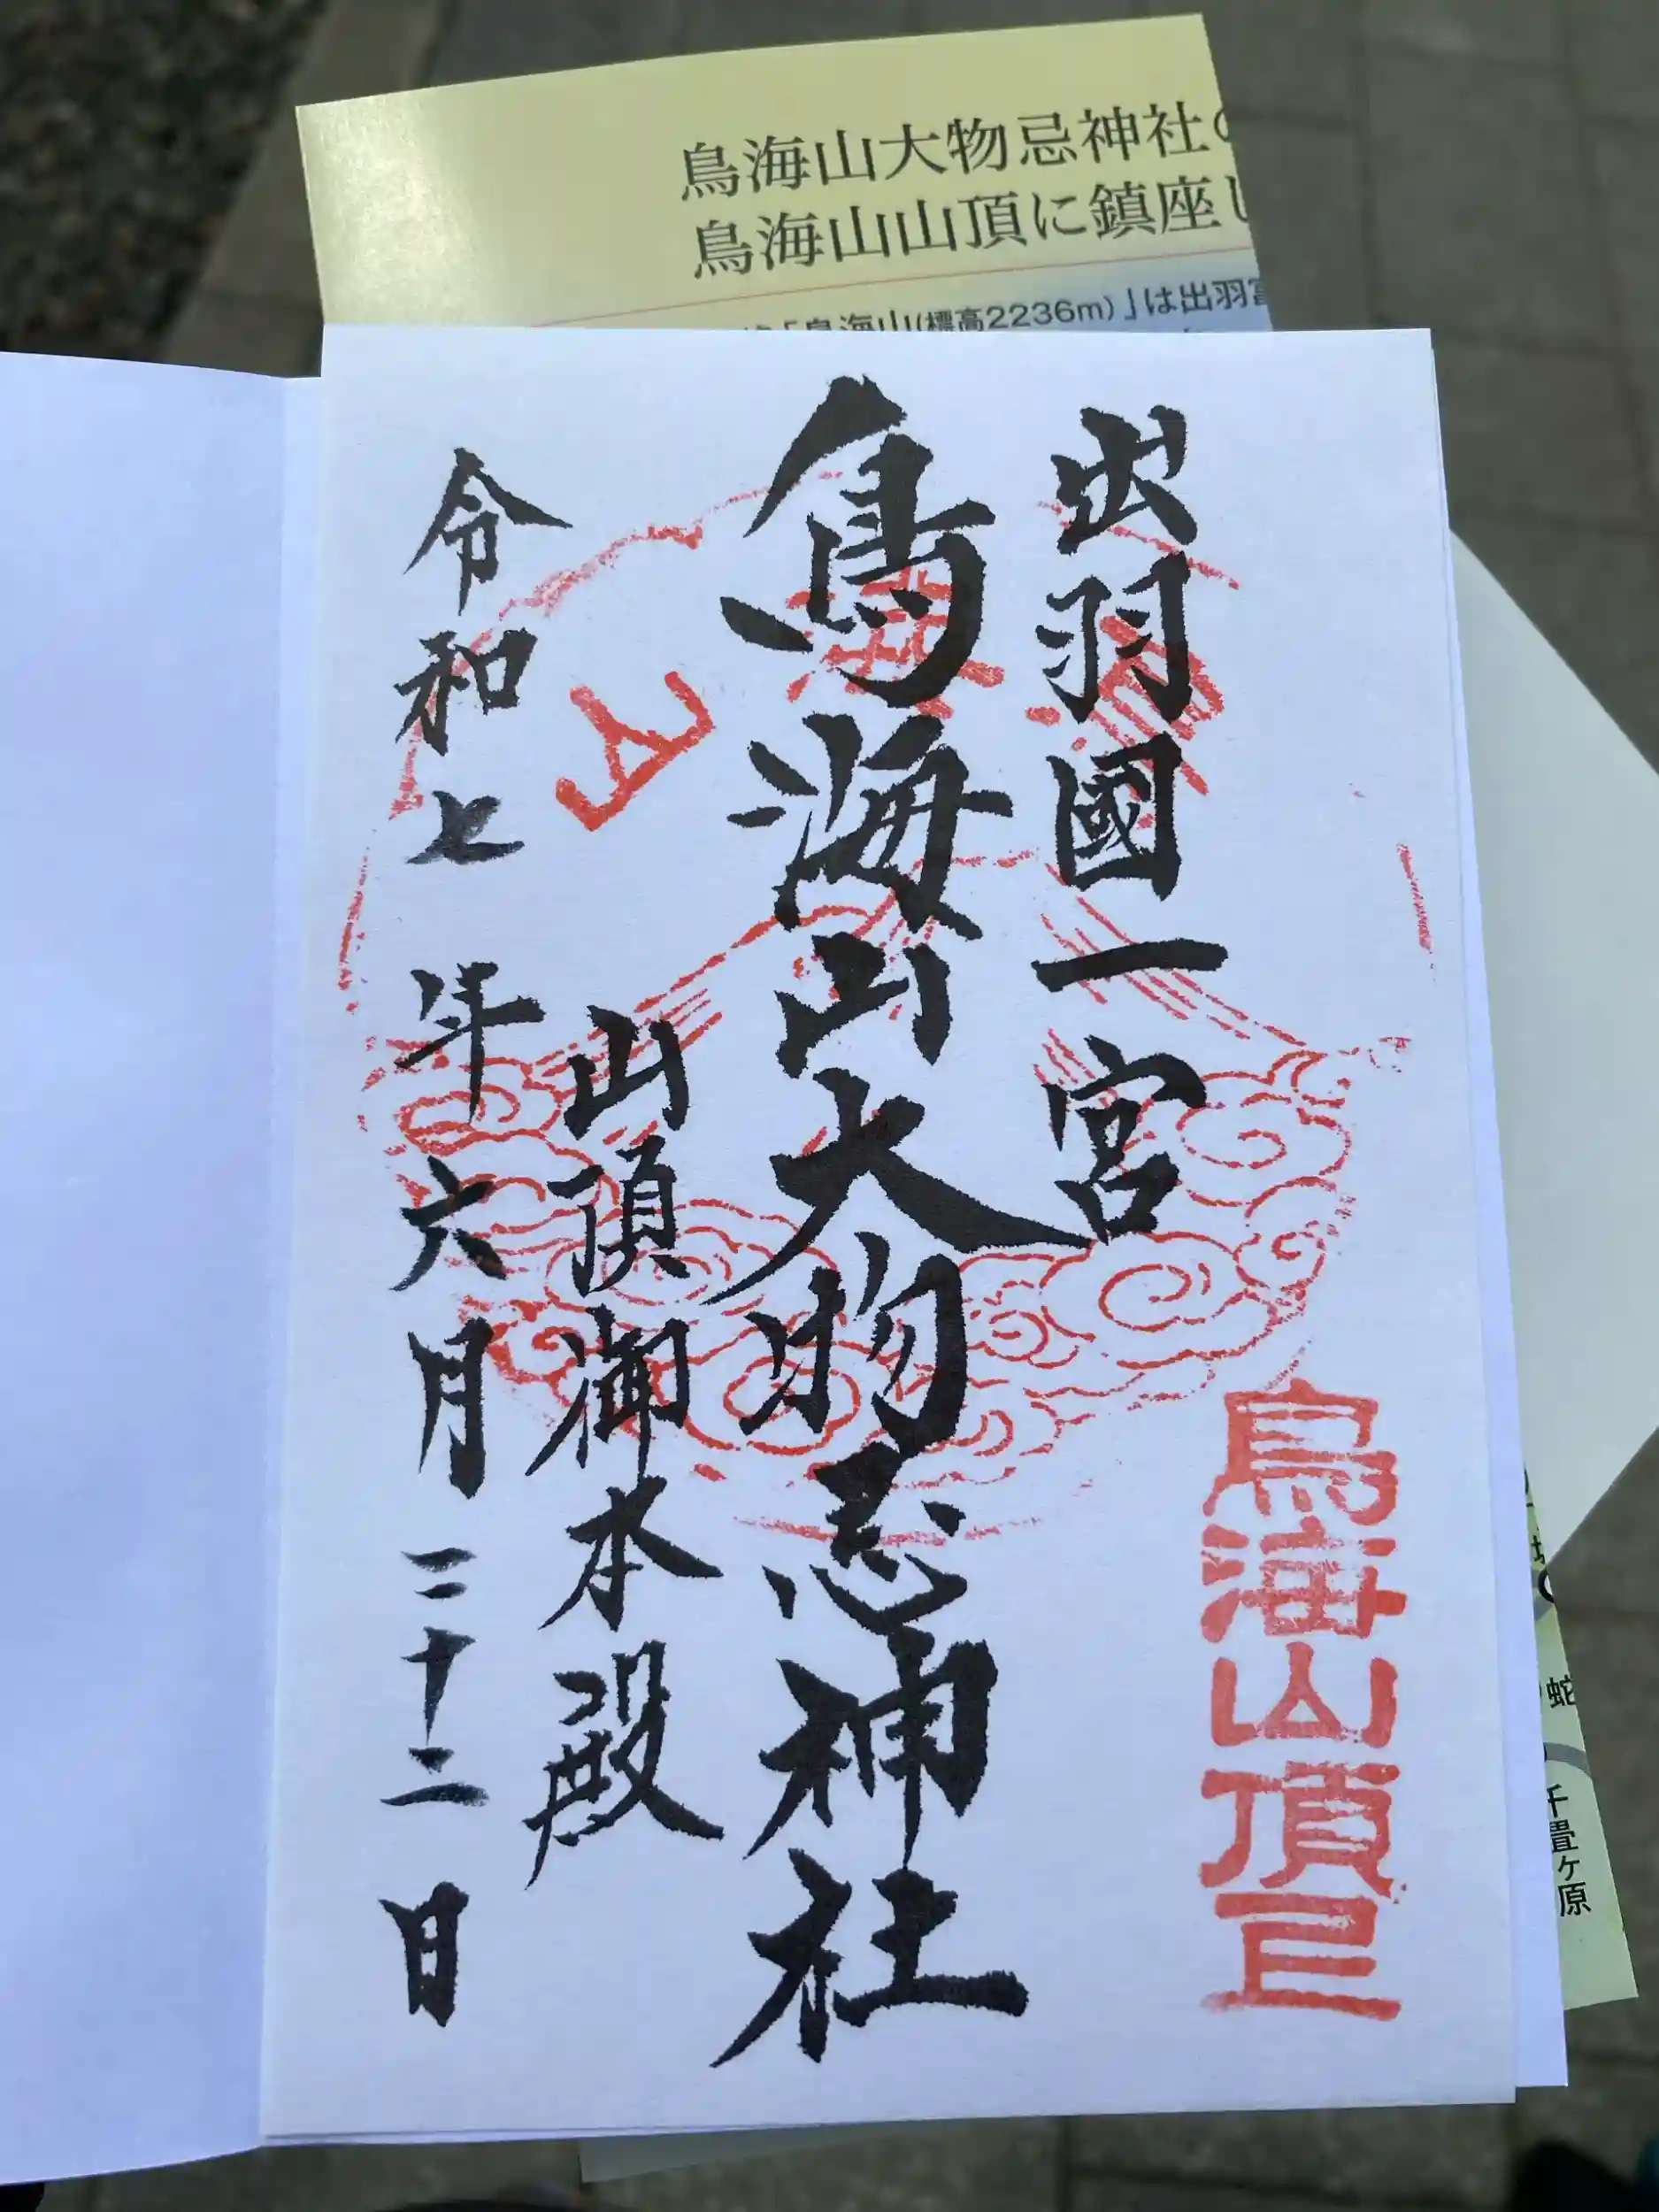 鳥海山大物忌神社の
鳥海山山頂に鎮座し
「鳥海山(標高2236m)」は出羽富
出羽國一宮
鳥海山大物忌神社
山頂御本殿
令和七年六月二十二日
鳥海山
鳥海山頂上
蛇
千畳ヶ原